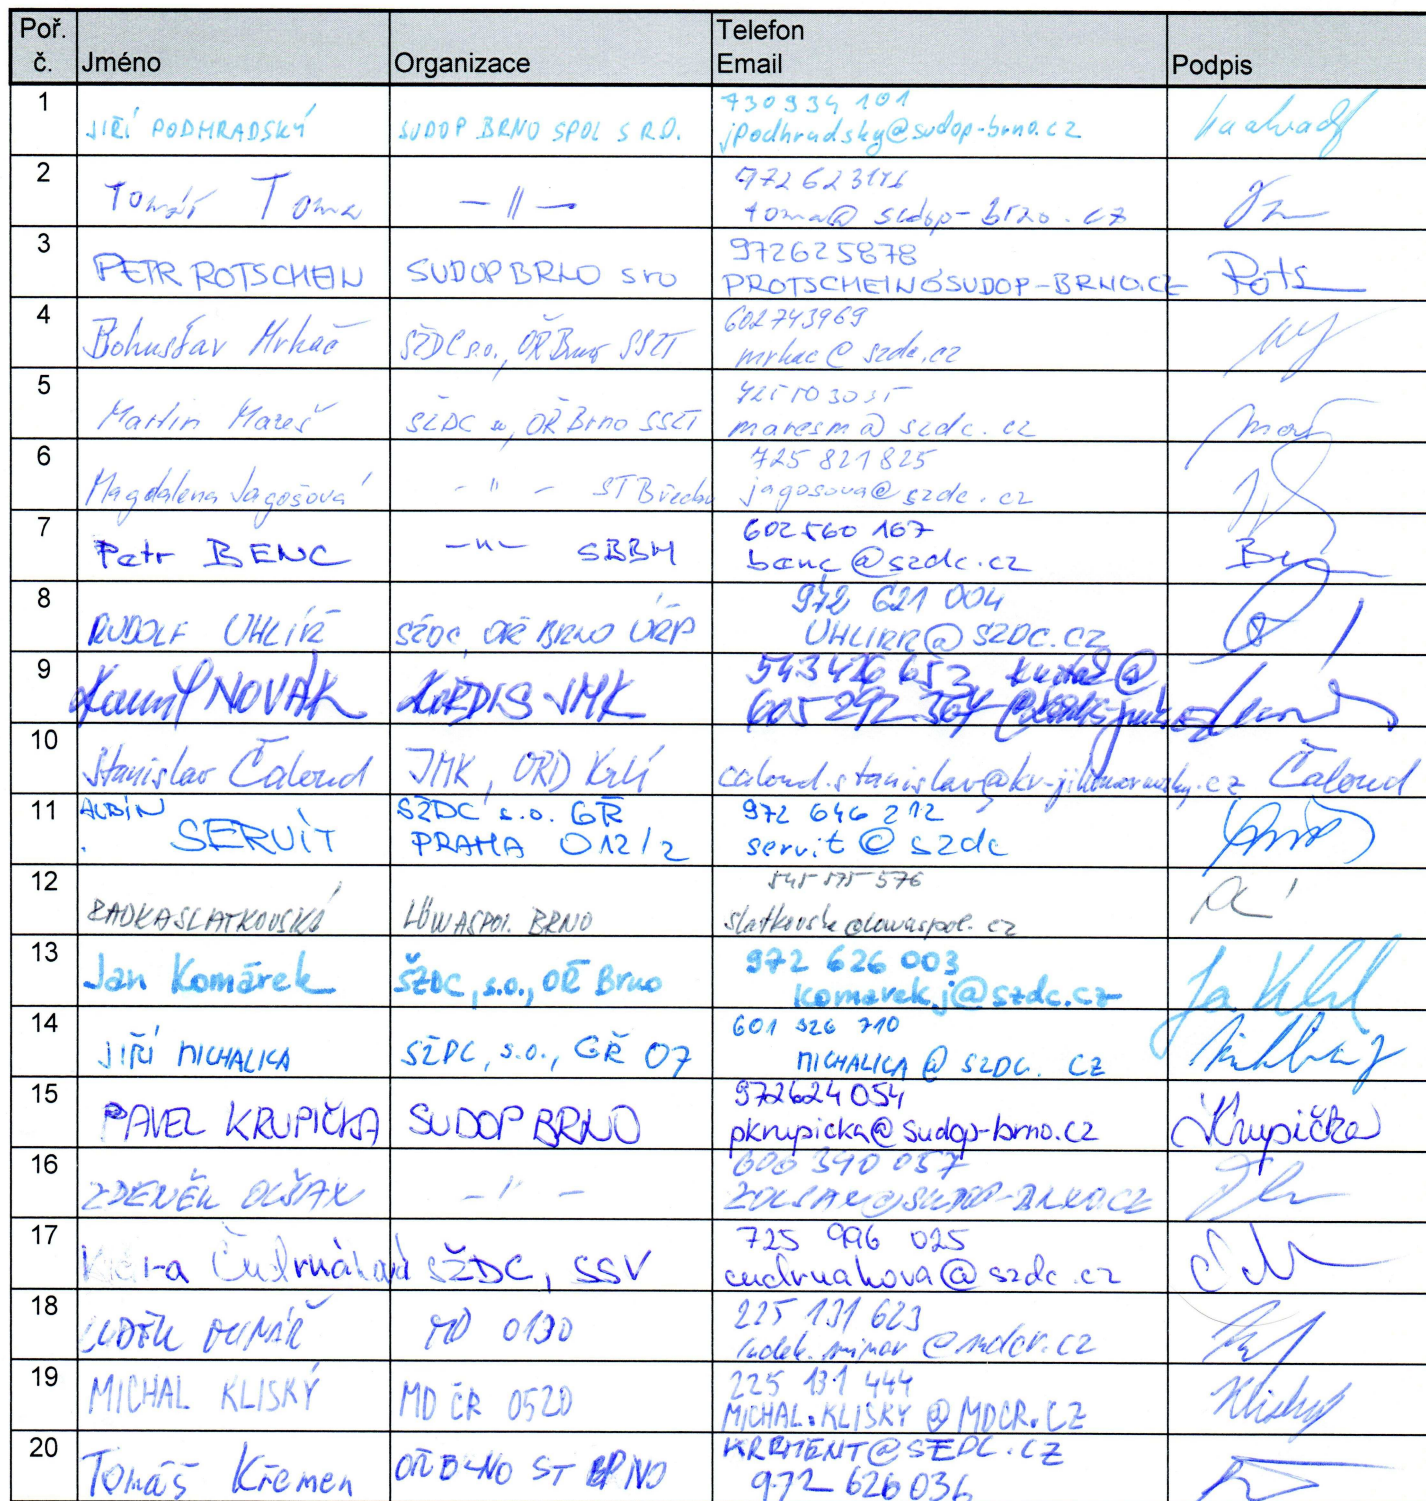 Poř. č. Jméno Organizace Telefon Email Podpis
1 JIŘÍ PODHRADSKÝ SUDOP BRNO SPOL S R.O. 730 934 101
jpodhradsky@sudop-brno.cz
2 Tomáš Toma — || — 972623116
toma@sudop-brno.cz
3 PETR ROTSCHEIN SUDOP BRNO sro 972625878
PROTSCHEIN@SUDOP-BRNO.CZ Rots
4 Bohuslav Mrkáč SŽDC s.o., OŘ Brno SSZT 602743969
mrkac@szdc.cz
5 Martin Mareš SŽDC so, OŘ Brno SSZT
maresm@szdc.cz
6 Magdalena Jagošová - " - ST Břeclav 725 821 825
jagosova@szdc.cz
7 Petr BENC -"- SBBH 602 560 167
benc@szdc.cz
8 RUDOLF UHLÍŘ SŽDC, OŘ BRNO ÚŘP 972 621 004
UHLIRR@SZDC.CZ
9 Kamil NOVÁK KORDIS JMK 543 426 653
605 292 364
10 Stanislav Čaloud JMK, ORD KrÚ caloud.stanislav@kr-jihomoravsky.cz Čaloud
11 ALBÍN SERVÍT SŽDC s.o. GŘ 972 646 212
PRAHA O12/2 servit@szdc
12 RADKA SLATKOVSKÁ LÖWASPOL BRNO 545 575 576
slatkovska@lowaspol.cz
13 Jan Komárek SŽDC, s.o., OŘ Brno 972 626 003
komarek.j@szdc.cz
14 JIŘÍ MICHALICA SŽDC, s.o., GŘ O7 601 526 710
MICHALICA@SZDC.CZ
15 PAVEL KRUPIČKA SUDOP BRNO 972624054
pkrupicka@sudop-brno.cz Krupička
16 ZDENĚK OLŠAN - " - 606 340 057
ZOLSAN@SUDOP-BRNO.CZ
17 Čudrnáková SŽDC, SSV 725 996 025
cudrnakova@szdc.cz
18 LUDĚK MINÁŘ MD 0190 225 131 623
ludek.minar@mdcr.cz
19 MICHAL KLISKÝ MD ČR 0520 225 131 444
MICHAL.KLISKY@MDCR.CZ Klisky
20 Tomáš Křemen OŘ BRNO ST BRNO KREMENT@SZDC.CZ
972 626 036